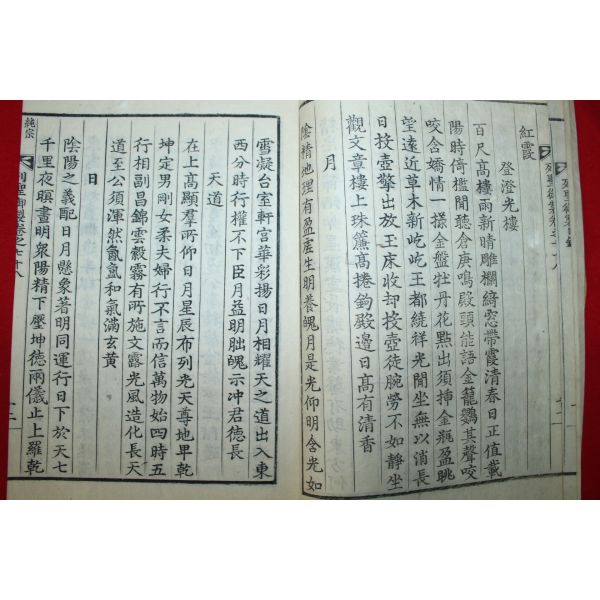 列聖御製卷之十八
紅霞
登澄光樓
百尺高樓雨新晴雕欄綺窓帶霞清春日正值載
陽時倚檻閒聽倉庚鳴殿頭能語金籠鸚其聲咬
咬含嬌情一樣金盤牡丹花點出須揷金瓶盈眺
望遠近草木新屹屹王都繞祥光閒坐無以消長
日投壺擎出放玉床收却投壺徒腕勞不如靜坐
觀文章樓上珠簾高捲鉤殿邊日高有清香
月
陰精地理有盈虛生明養魄月是光仰明含光如
雪凝台室軒宮華彩揚日月相耀天之道出入東
西分時行權不下臣月益明朏魄示冲君德長
天道
在上高顯羣所仰日月星辰布列光天尊地卑乾
坤定男剛女柔夫婦行不言而信萬物始四時五
行相副昌錦雲縠霧有所施文露光風造化長天
道至公須渾然氤氳和氣滿玄黃
日
陰陽之義配日月懸象著明同運行日下於天七
千里夜暝晝明衆陽精下壓坤德兩儀止上羅乾
純宗
列聖御製卷之十八